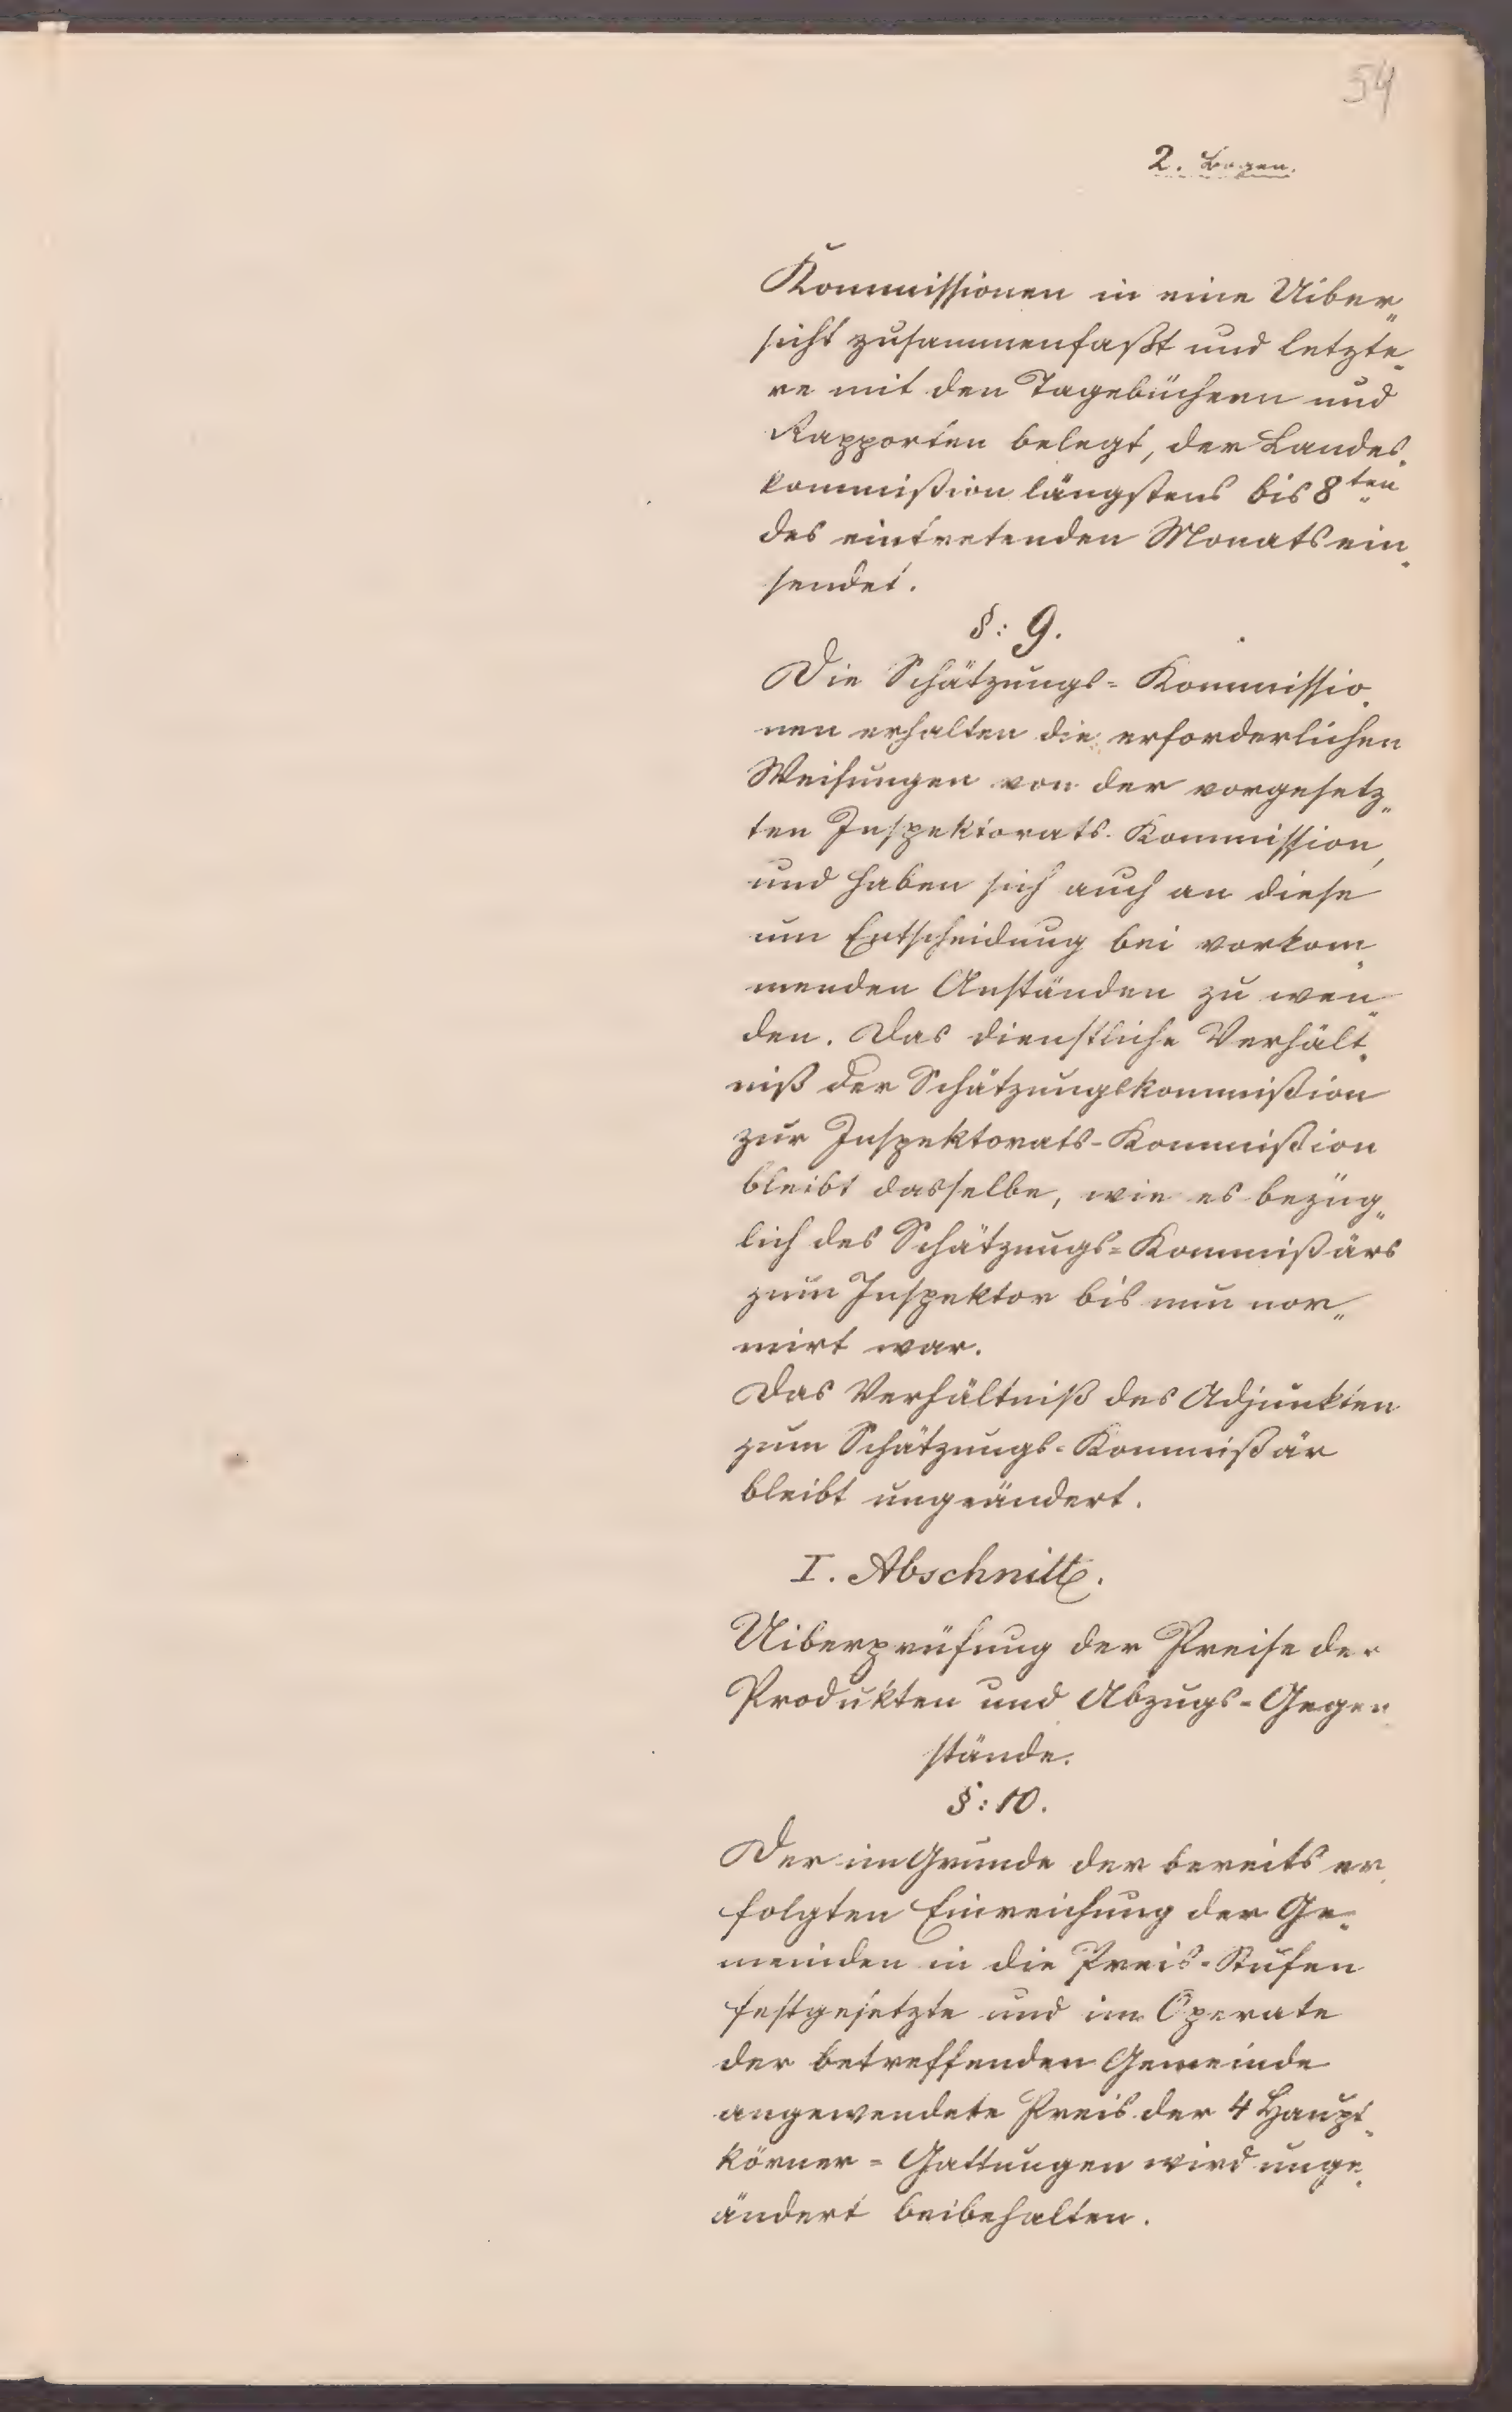 54
2. Bogen.
Kommissionen in eine Uiber„
sicht zusammenfaßt und letzte„
re mit den Tagebüchern und
Rapporten belegt, der Landes„
kommißion längstens bis 8ten
des eintretenden Monats ein„
sendet.
§: 9.
Die Schätzungs=Kommissio„
nen erhalten die erforderlichen
Weisungen von der vorgesetz„
ten Inspektorats-Kommission,
und haben sich auch an diese
um Entscheidung bei vorkom„
menden Anständen zu wen„
den. Das dienstliche Verhält„
niß der Schätzungskommißion
zur Inspektorats-Kommißion
bleibt dasselbe, wie es bezüg„
lich des Schätzungs=Kommißärs
zum Inspektor bis nun nor„
mirt war.
Das Verhältniß des Adjunkten
zum Schätzungs=Kommißär
bleibt ungeändert.
I. Abschnitt.
Uiberprüfung der Preise der
Produkten und Abzugs=Gegen
stände.
§: 10.
Der im Grunde der bereits er„
folgten Einreihung der Ge„
meinden in die Preis-Stufen
festgesetzte und im Operate
der betreffenden Gemeinde
angewendete Preis der 4 Haupt„
körner=Gattungen wird unge„
ändert beibehalten.